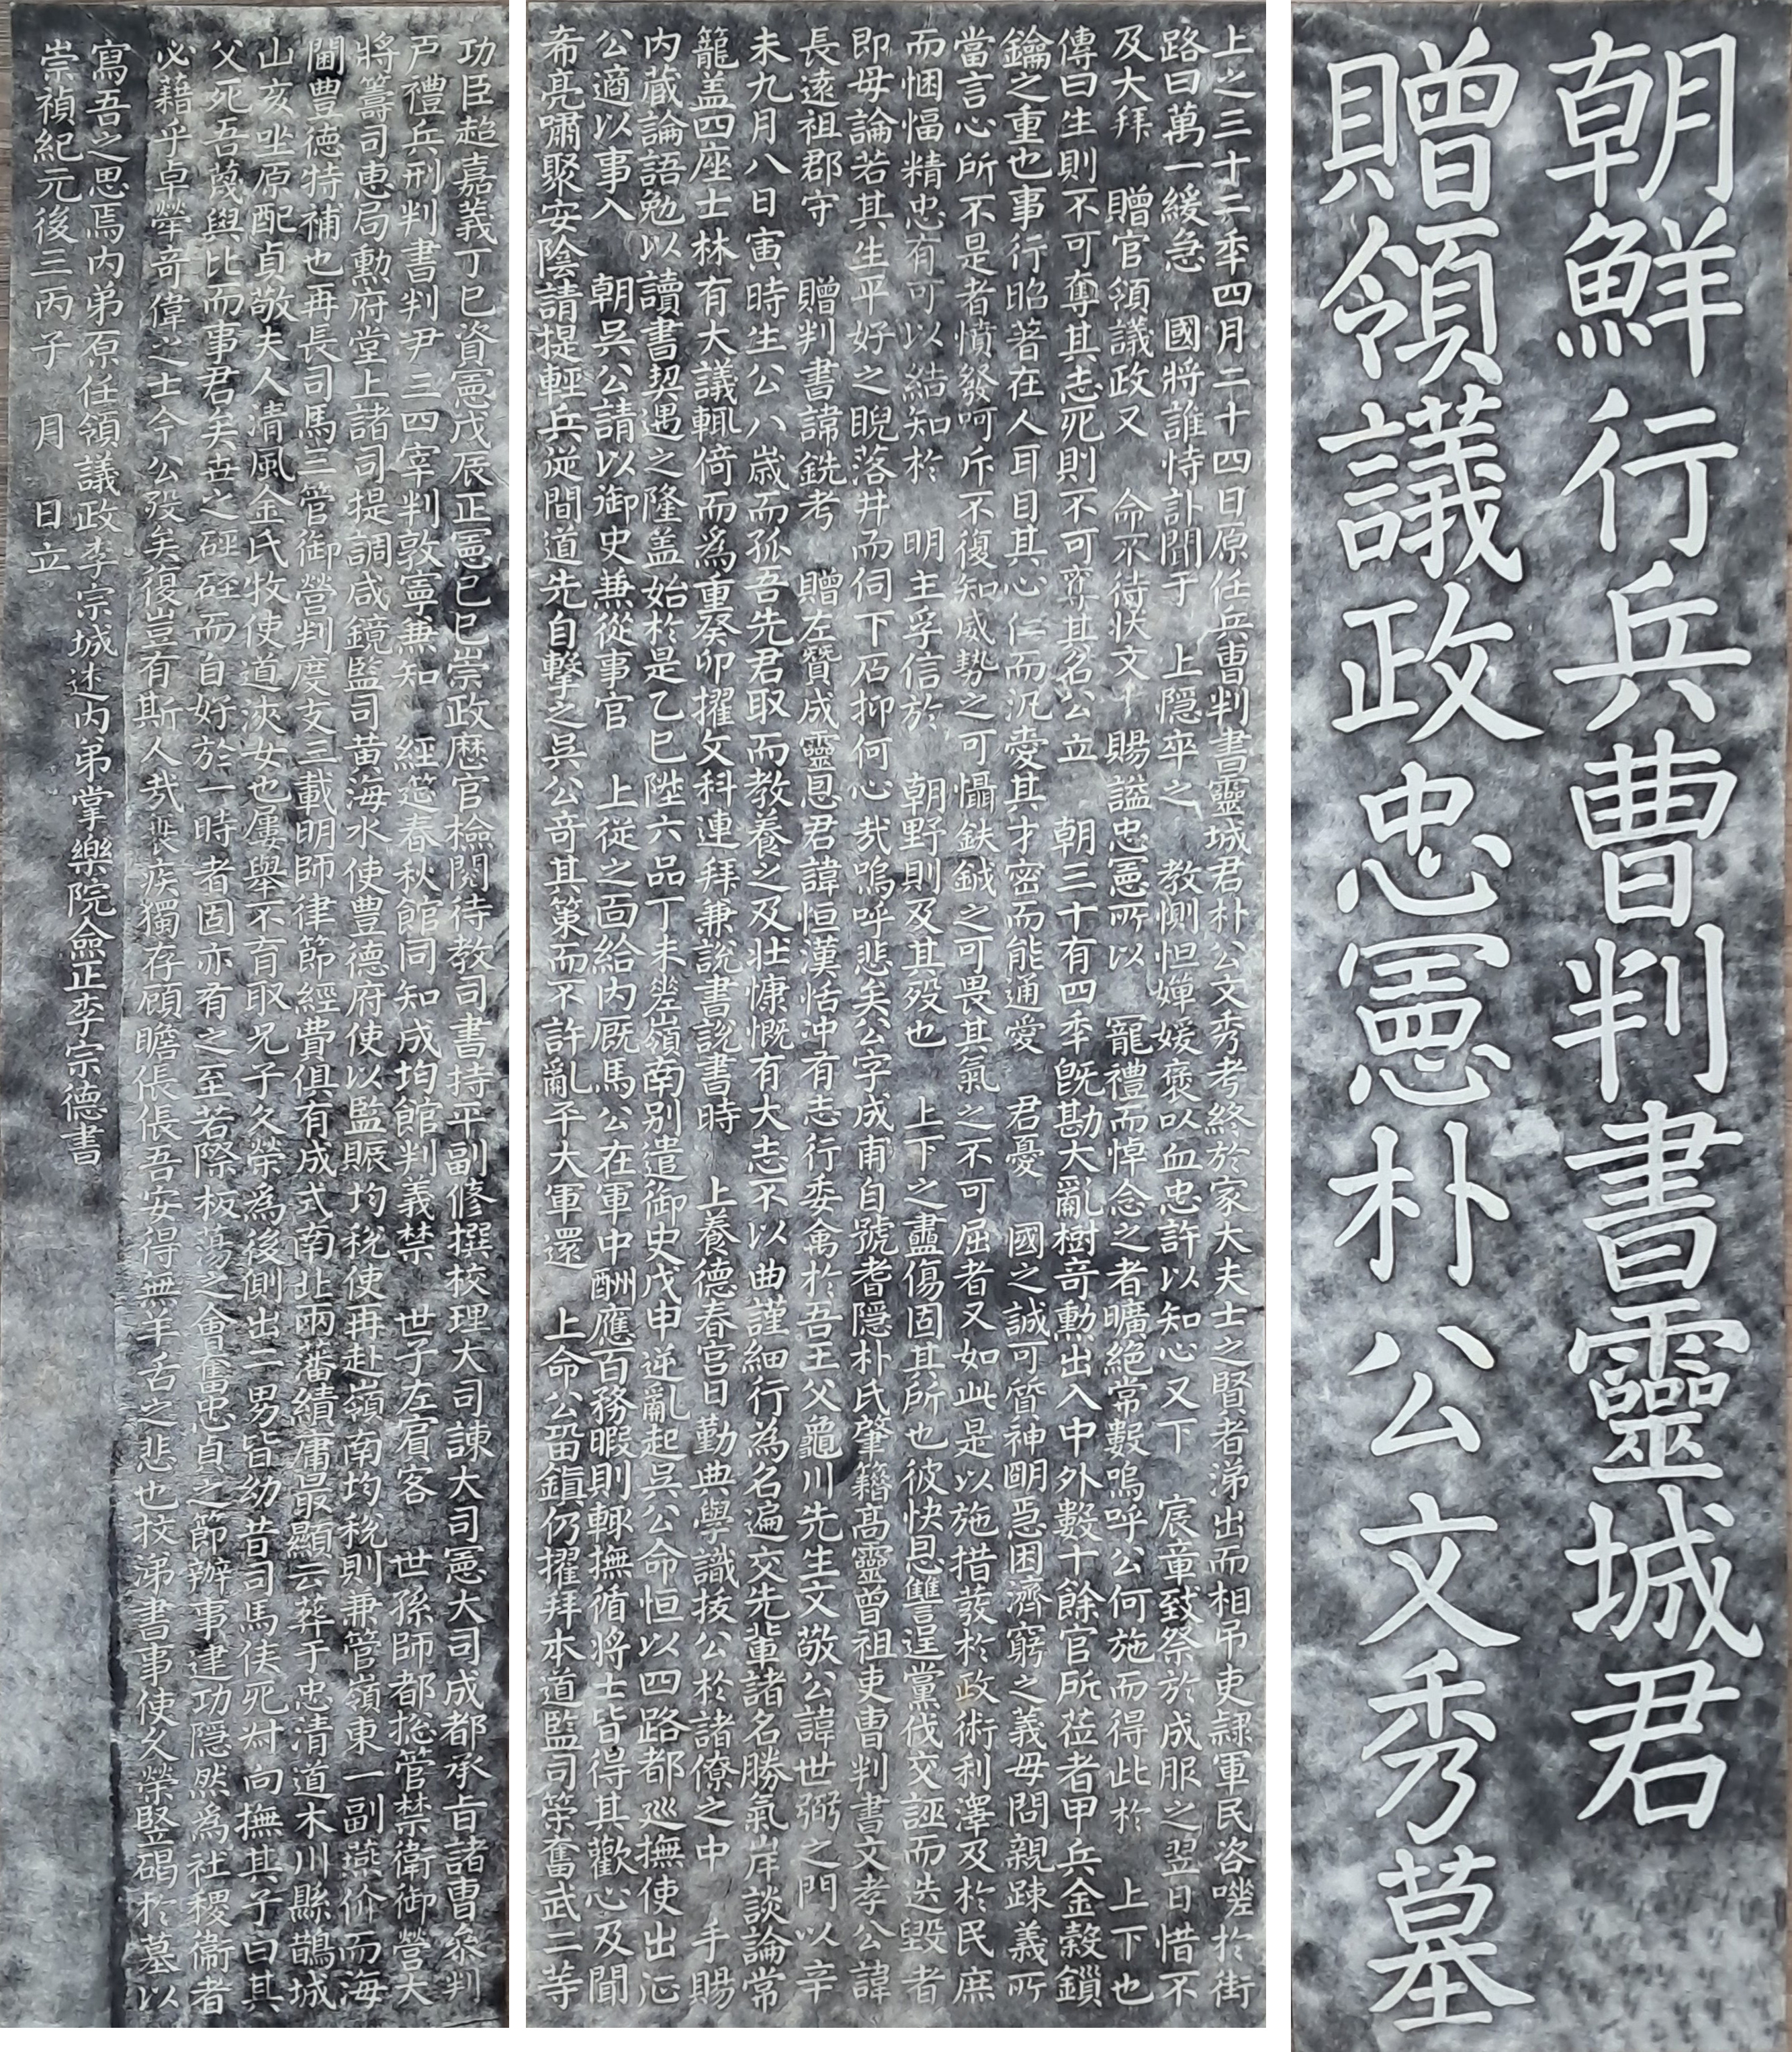 朝鮮行兵曹判書靈城君
贈領議政忠憲朴公文秀墓
上之三十二年四月二十四日原任兵曹判書靈城君朴公文秀考終於家大夫士之賢者涕出而相吊吏隷軍民咨嗟於街
路曰萬一緩急 國將誰恃訃聞于 上隱卒之 教惻怛嬋媛褒以血忠許以知心又下 宸章致祭於成服之翌日惜不
及大拜 贈官領議政又 命不待狀文 賜謚忠憲所以 寵禮而悼念之者曠絶常數嗚呼公何施而得此於 上下也
傳曰生則不可奪其志死則不可奪其名公立 朝三十有四年旣勘大亂樹奇勳出入中外數十餘官所莅者甲兵金穀鎖
鑰之重也事行昭著在人耳目其心仁而汎愛其才密而能通愛 君憂 國之誠可質神明急困濟窮之義毋問親踈義所
當言心所不是者憤發呵斥不復知威勢之可懾鈇鉞之可畏其氣之不可屈者又如此是以施措發於政術利澤及於民庶
而悃愊精忠有可以結知於 明主孚信於 朝野則及其歿也 上下之衋傷固其所也彼快恩讐逞黨伐交誣而迭毀者
即毋論若其生平好之睨落井而伺下石抑何心哉嗚呼悲矣公字成甫自號耆隱朴氏肇籍高靈曾祖吏曹判書文孝公諱
長遠祖郡守 贈判書諱銑考 贈左贊成靈恩君諱恒漢恬冲有志行委禽於吾王父龜川先生文敬公諱世弼之門以辛
未九月八日寅時生公八歲而孤吾先君取而教養之及壯慷慨有大志不以曲謹細行為名遍交先輩諸名勝氣岸談論常
籠盖四座士林有大議輒倚而爲重癸卯擢文科連拜兼說書說書時 上養德春宮日勤典學識拔公於諸僚之中 手賜
內蔵論語勉以讀書契遇之隆盖始於是乙巳陞六品丁未差嶺南别遣御史戊申逆亂起吳公命恒以四路都廵撫使出征
公適以事入 朝吳公請以御史兼從事官 上從之面給內厩馬公在軍中酬應百務暇則輒撫循將士皆得其歡心及聞
希亮嘯聚安陰請提輕兵從間道先自擊之吳公奇其策而不許亂平大軍還 上命公留鎭仍擢拜本道監司策奮武二等
功臣超嘉義丁巳資憲戊辰正憲己巳崇政歷官檢閱待教司書持平副修撰校理大司諫大司憲大司成都承旨諸曹叅判
戸禮兵刑判書判尹三四宰判敦寧兼知 經筵春秋館同知成均館判義禁 世子左賓客 世孫師都捴管禁衛御營大
將籌司惠局勳府堂上諸司提調咸鏡監司黃海水使豊德府使以監賑均稅使再赴嶺南均稅則兼管嶺東一副燕价而海
閫豊德特補也再長司馬三管御營判度支三載明師律節經費俱有成式南北兩藩績庸最顯云葬于忠清道木川縣鵲城
山亥坐原配貞敬夫人清風金氏牧使道浹女也屢擧不育取兄子久榮為後側出二男皆幼昔司馬佚死对向撫其子曰其
父死吾蔑與比而事君矣世之硜硜而自好於一時者固亦有之至若際板蕩之會奮忠貞之節辦事建功隱然為社稷衞者
必藉乎卓犖竒偉之士今公歿矣復豈有斯人㢤喪疾獨存顧瞻倀倀吾安得無羊舌之悲也抆涕書事使久榮竪碣於墓以
寓吾之思焉內弟原任領議政李宗城述內弟掌樂院僉正李宗德書
崇禎紀元後三丙子 月 日立